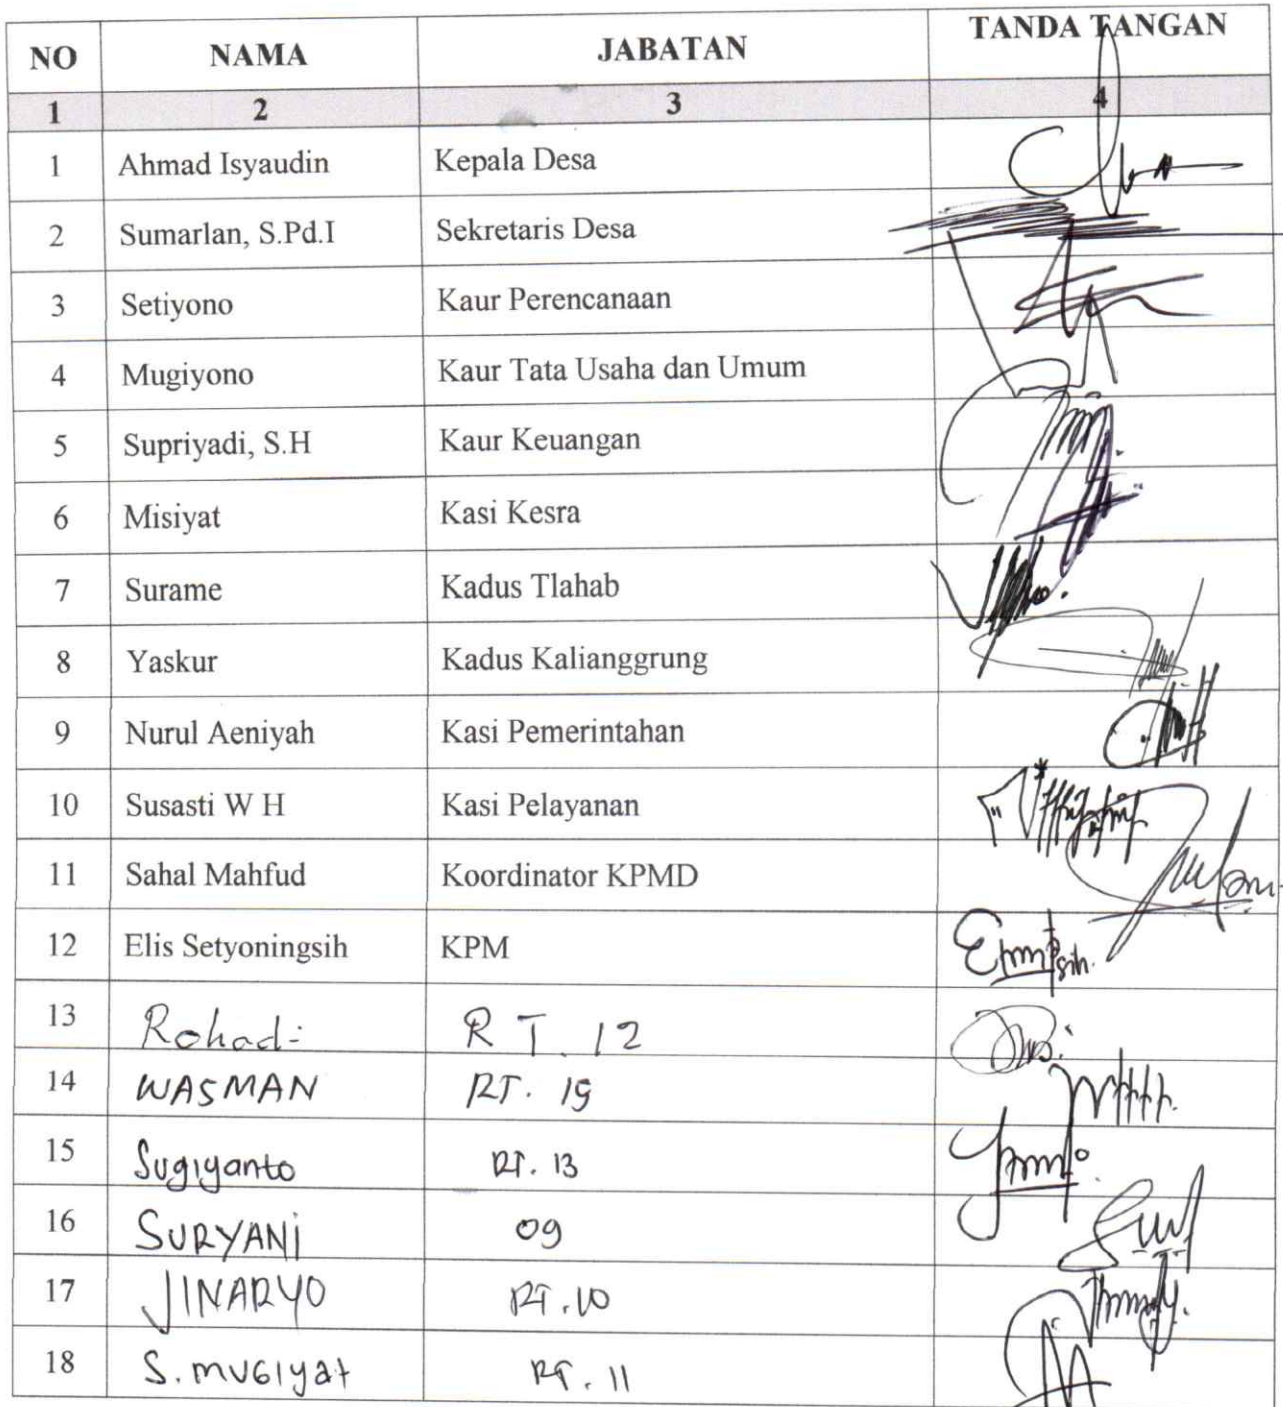 NO NAMA JABATAN TANDA TANGAN
1 2 3 4
1 Ahmad Isyaudin Kepala Desa
2 Sumarlan, S.Pd.I Sekretaris Desa
3 Setiyono Kaur Perencanaan
4 Mugiyono Kaur Tata Usaha dan Umum
5 Supriyadi, S.H Kaur Keuangan
6 Misiyat Kasi Kesra
7 Surame Kadus Tlahab
8 Yaskur Kadus Kalianggrung
9 Nurul Aeniyah Kasi Pemerintahan
10 Susasti W H Kasi Pelayanan
11 Sahal Mahfud Koordinator KPMD
12 Elis Setyoningsih KPM
13 Rohadi R T. 12
14 WASMAN RT. 19
15 Sugiyanto RT. 13
16 SURYANi 09
17 JINARYO RT. 10
18 S. MUGIyat RT. 11